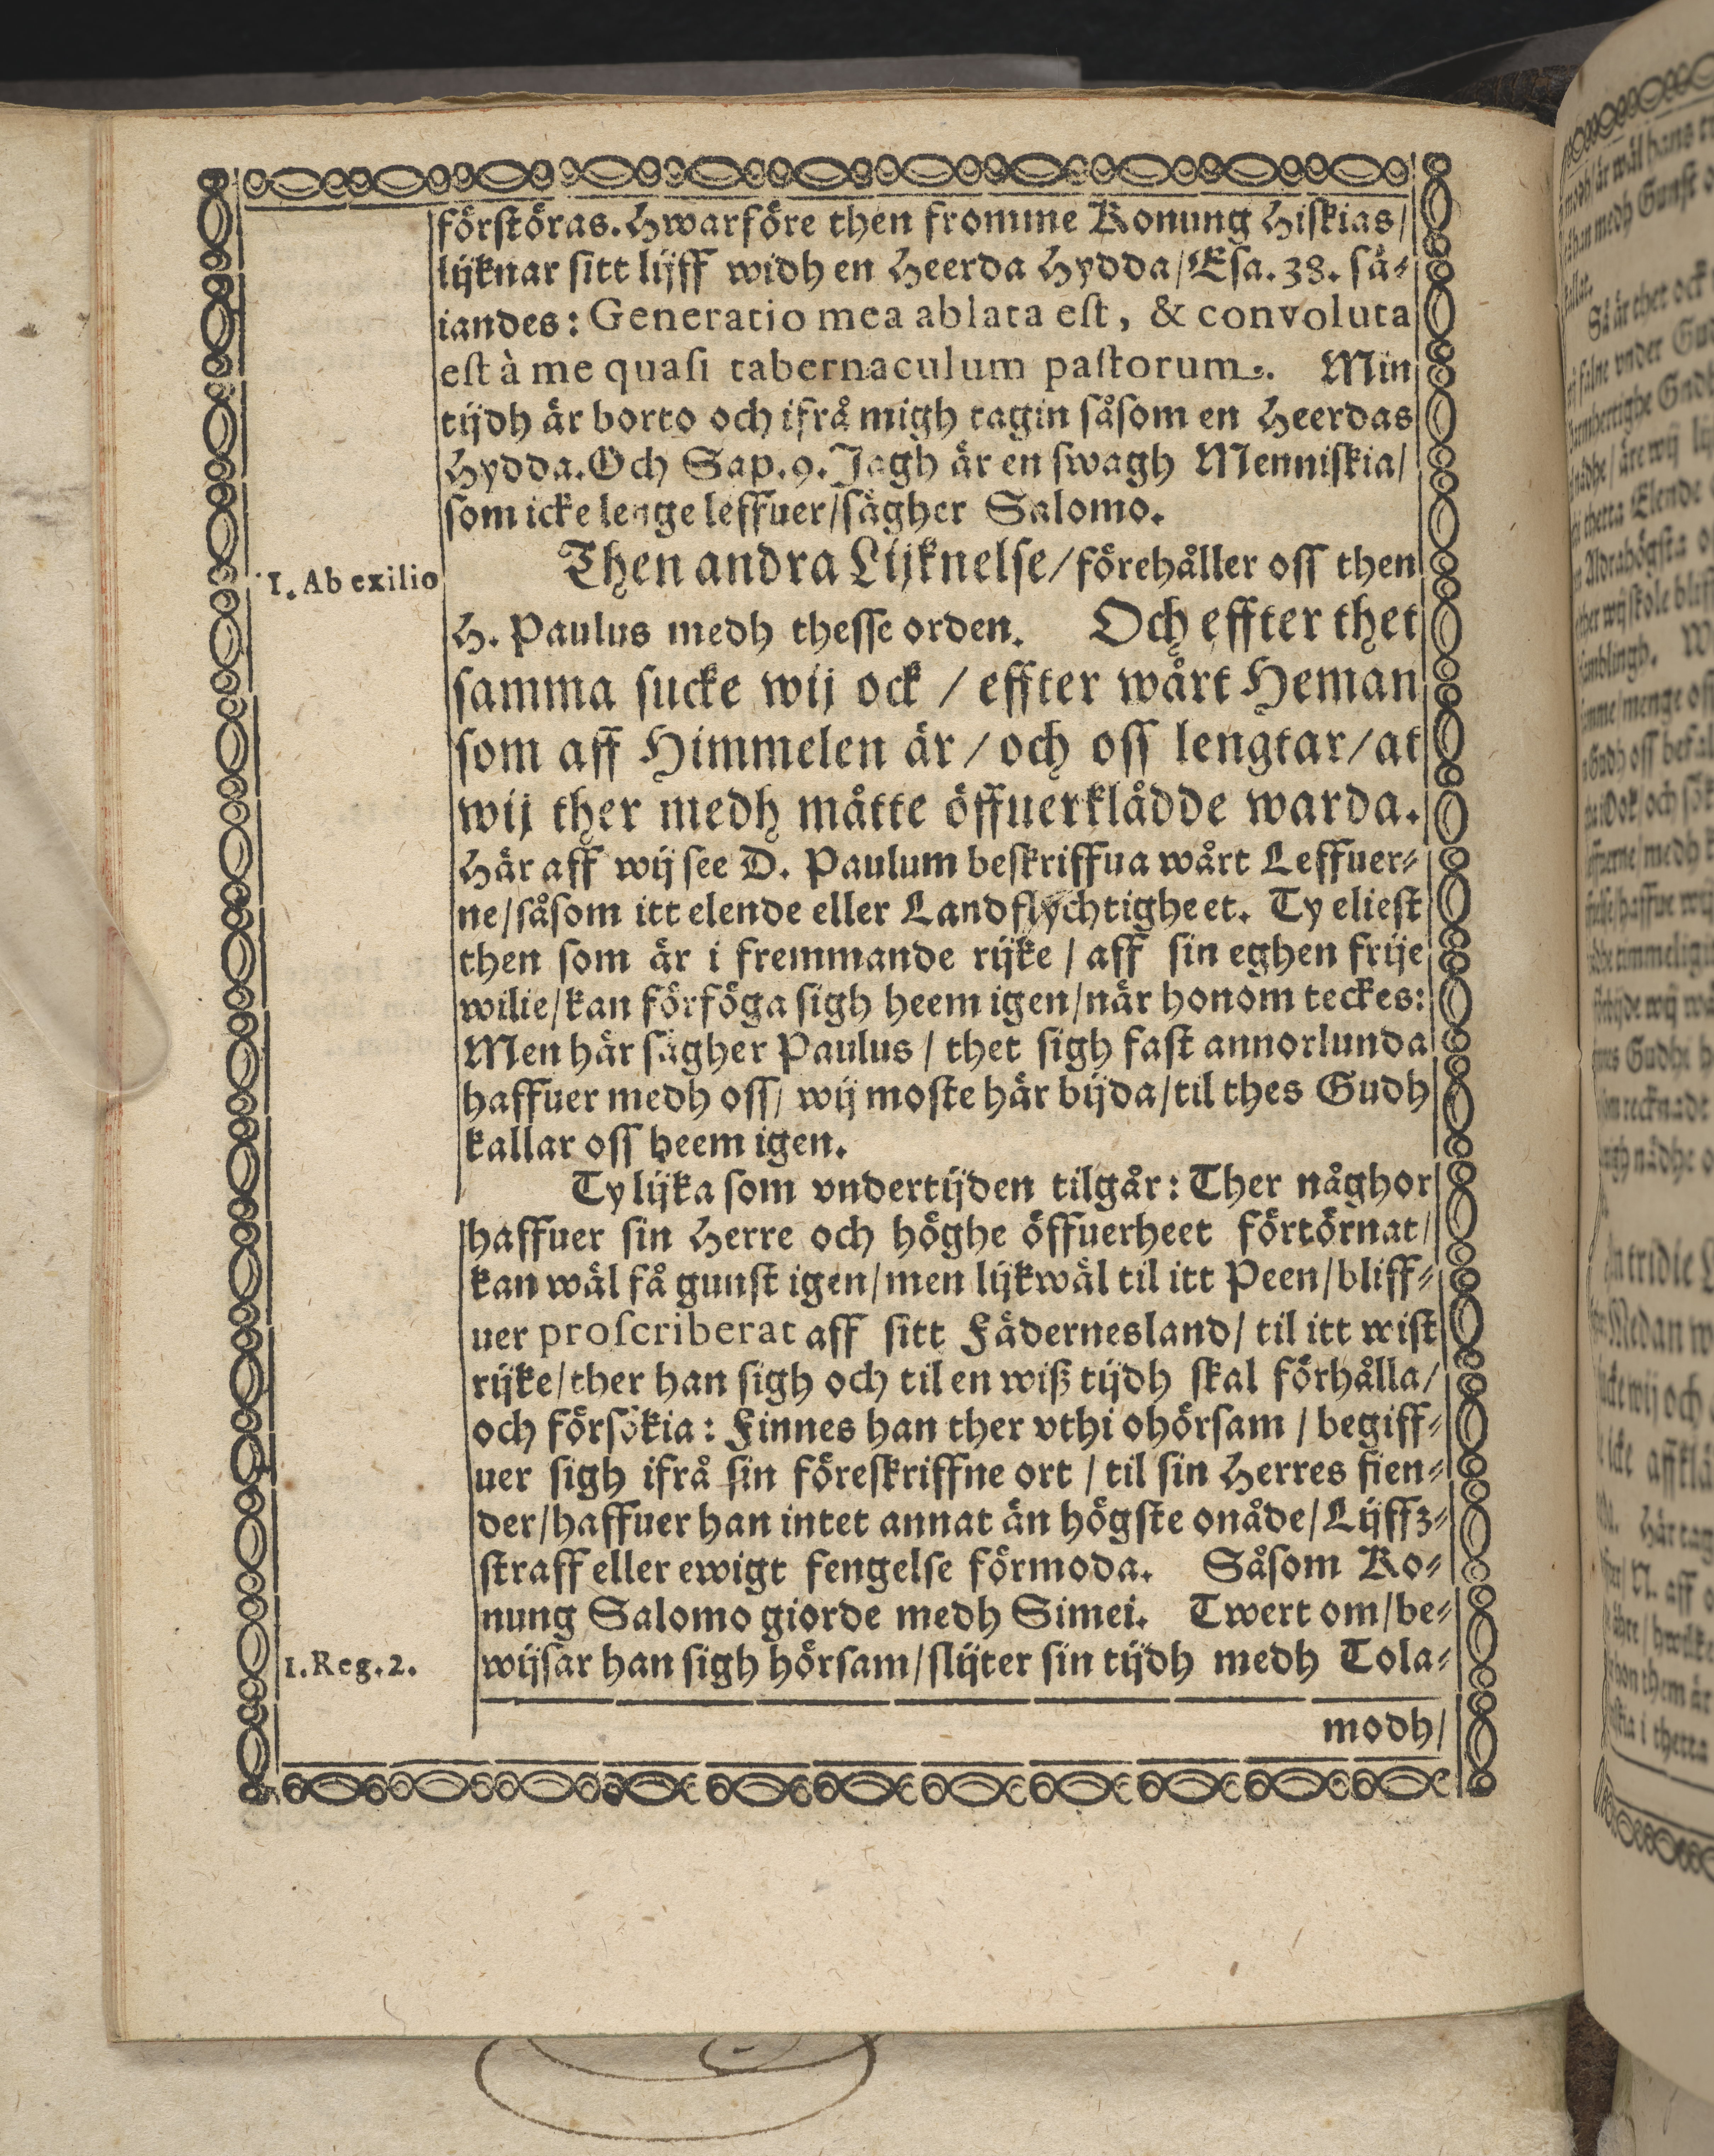 förstöras. Hwarföre then fromme Konung Hiskias/
lijknar sitt lijff widh en Heerda Hydda/Esa. 38. sä-
iandes: Generatio mea ablata est, & convoluta
est à me quasi tabernaculum pastorum. Min
tijdh är borto och ifrå migh tagin såsom en Heerdas
Hydda. Och Sap. 9. Jagh är en swagh Menniskia/
som icke lenge leffuer/sägher Salomo.
Then andra Lijknelse/förehåller oss then
1. Ab exilio
H. Paulus medh thesse orden. Och effter thet
samma sucke wij ock / effter wårt Heman
som aff Himmelen är/och oss lengtar/at
wij ther medh måtte öffuerklädde warda.
Här aff wij see D. Paulum beskriffua wårt Leffuer-
ne/såsom itt elende eller Landflychtigheet. Ty eliest
then som är i fremmande rijke / aff sin eghen frije
wilie/kan förföga sigh heem igen/när honom teckes:
Men här sägher Paulus / thet sigh fast annorlunda
haffuer medh oss/ wij moste här bijda/til thes Gudh
kallar oss heem igen.
Ty lijka som vndertijden tilgår: Ther någhor
haffuer sin Herre och höghe öffuerheet förtörnat/
kan wäl få gunst igen/men lijkwäl til itt Peen/bliff-
uer proscriberat aff sitt Fädernesland/ til itt wist
rijke/ther han sigh och til en wiß tijdh skal förhålla/
och försökia: Finnes han ther vthi ohörsam / begiff-
uer sigh ifrå sin föreskriffne ort / til sin Herres fien-
der/haffuer han intet annat än högste onåde/Lijffz-
straff eller ewigt fengelse förmoda. Såsom Ko-
nung Salomo giorde medh Simei. Twert om/be-
1. Reg. 2.
wijsar han sigh hörsam/slijter sin tijdh medh Tola-
modh/